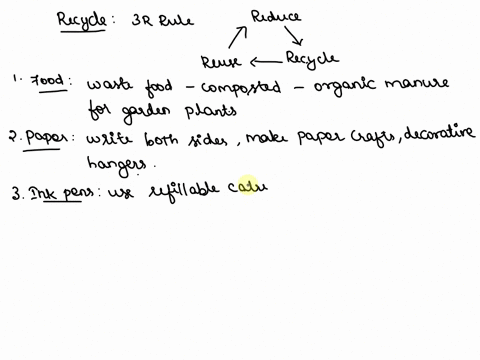 Recycle: 3R Rule
Reduce
Reuse
Recycle
1. Food: waste food - composted - organic manure
for garden plants
2. Paper: write both sides, make paper crafts, decorative
hangers.
3. Ink pens: use refillable